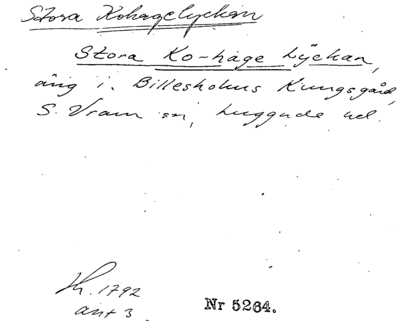 Stora Kohagelyckan
Stora Ko-hage Lyckan,
äng i Billesholms Kungsgård,
S. Vram sn, Luggude hd.
Kh. 1792
ant 3
Nr 5264.